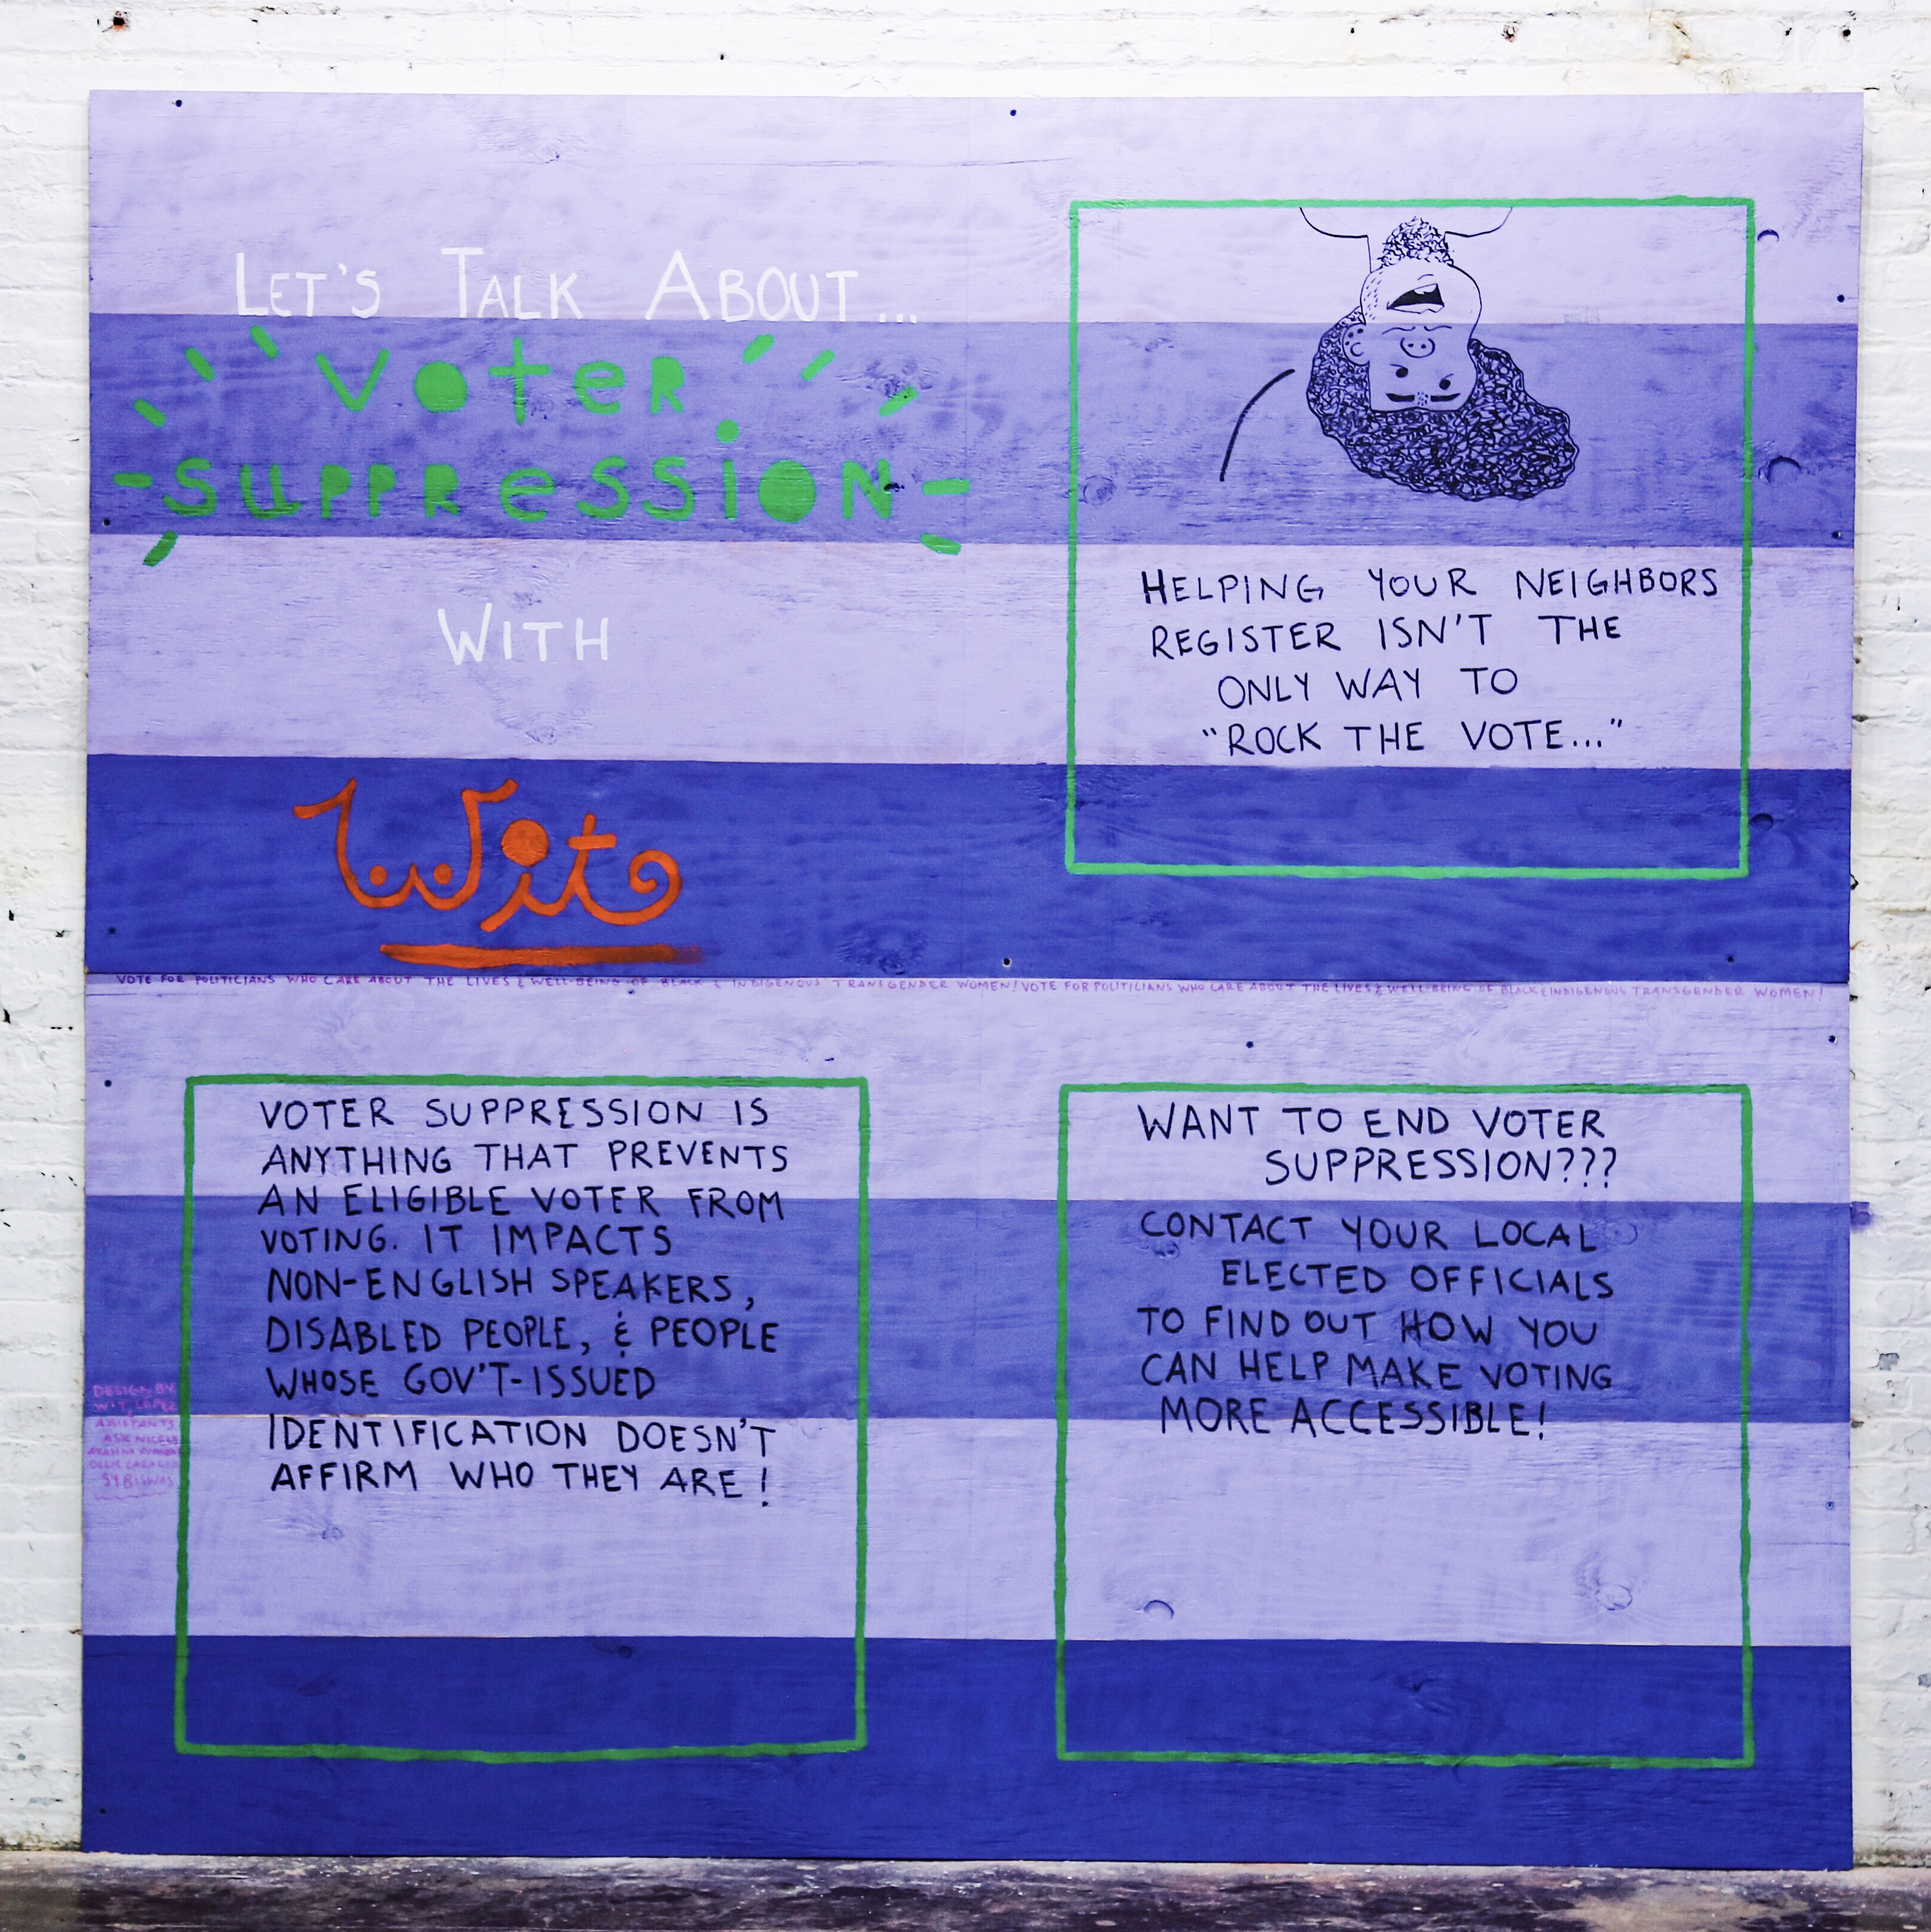 LET'S TALK ABOUT...
VOTER
SUPPRESSION
WITH
Wit
HELPING YOUR NEIGHBORS
REGISTER ISN'T THE
ONLY WAY TO
"ROCK THE VOTE..."
VOTE FOR POLITICIANS WHO CARE ABOUT THE LIVES & WELL-BEING OF BLACK & INDIGENOUS TRANSGENDER WOMEN! VOTE FOR POLITICIANS WHO CARE ABOUT THE LIVES & WELL-BEING OF BLACK & INDIGENOUS TRANSGENDER WOMEN!
VOTER SUPPRESSION IS
ANYTHING THAT PREVENTS
AN ELIGIBLE VOTER FROM
VOTING. IT IMPACTS
NON-ENGLISH SPEAKERS,
DISABLED PEOPLE, & PEOPLE
WHOSE GOV'T-ISSUED
IDENTIFICATION DOESN'T
AFFIRM WHO THEY ARE!
WANT TO END VOTER
SUPPRESSION???
CONTACT YOUR LOCAL
ELECTED OFFICIALS
TO FIND OUT HOW YOU
CAN HELP MAKE VOTING
MORE ACCESSIBLE!
DESIGN BY
WIT LÓPEZ
ASSISTANTS
ASK NICELY